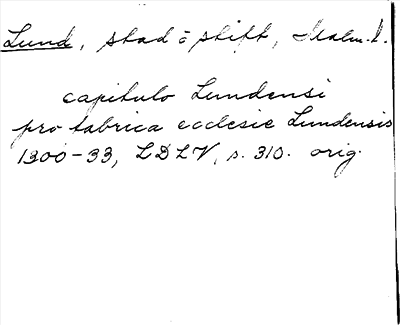 Lund, stad o stift, Malm. l.
capitulo Lundensi
pro fabrica ecclesie Lundensis
1300-33, LDLV, s. 310. orig.